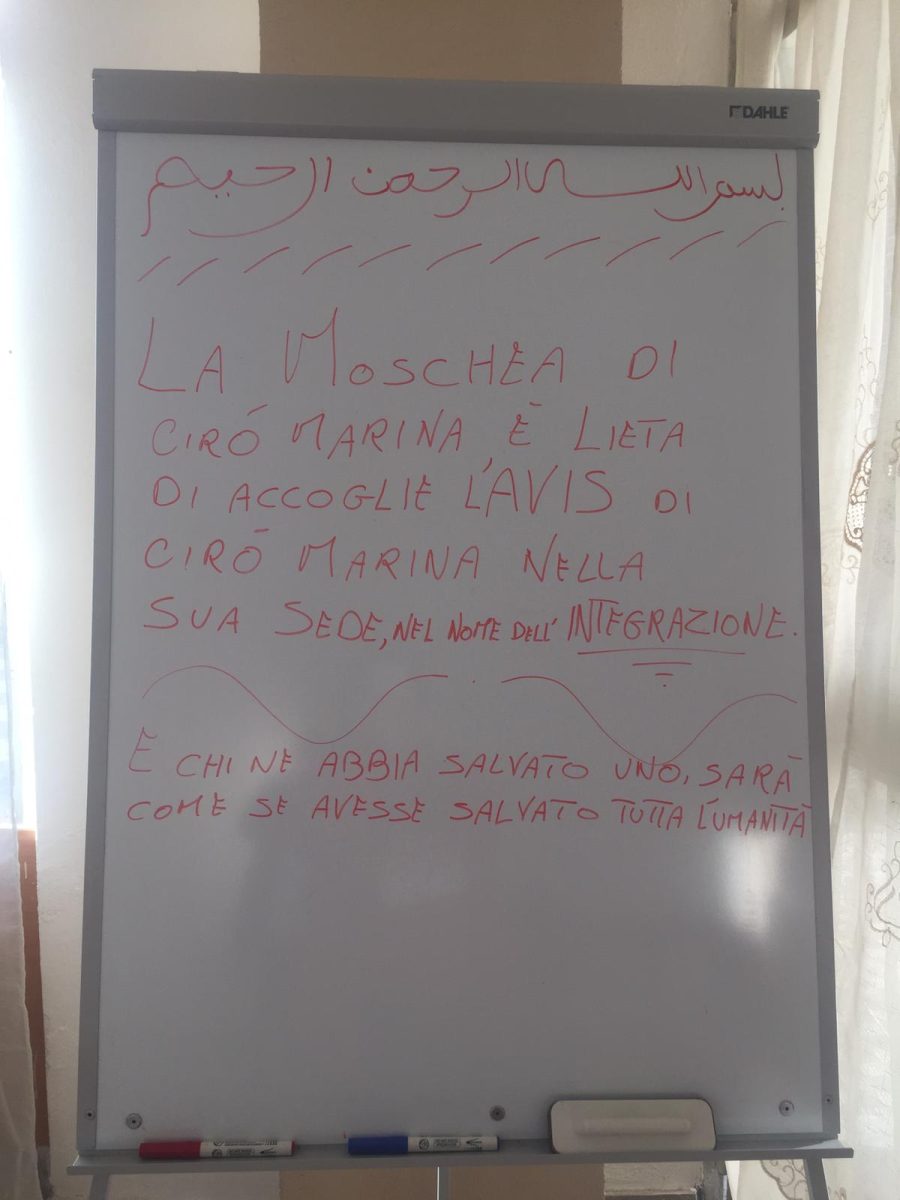 DAHLE
بسم الله الرحمن الرحيم
LA MOSCHEA DI
CIRÓ MARINA, È LIETA
DI ACCOGLIE L'AVIS DI
CIRÓ MARINA NELLA
SUA SEDE, NEL NOME DELL' INTEGRAZIONE.
E CHI NE ABBIA SALVATO UNO, SARÀ
COME SE AVESSE SALVATO TUTTA L'UMANITÀ